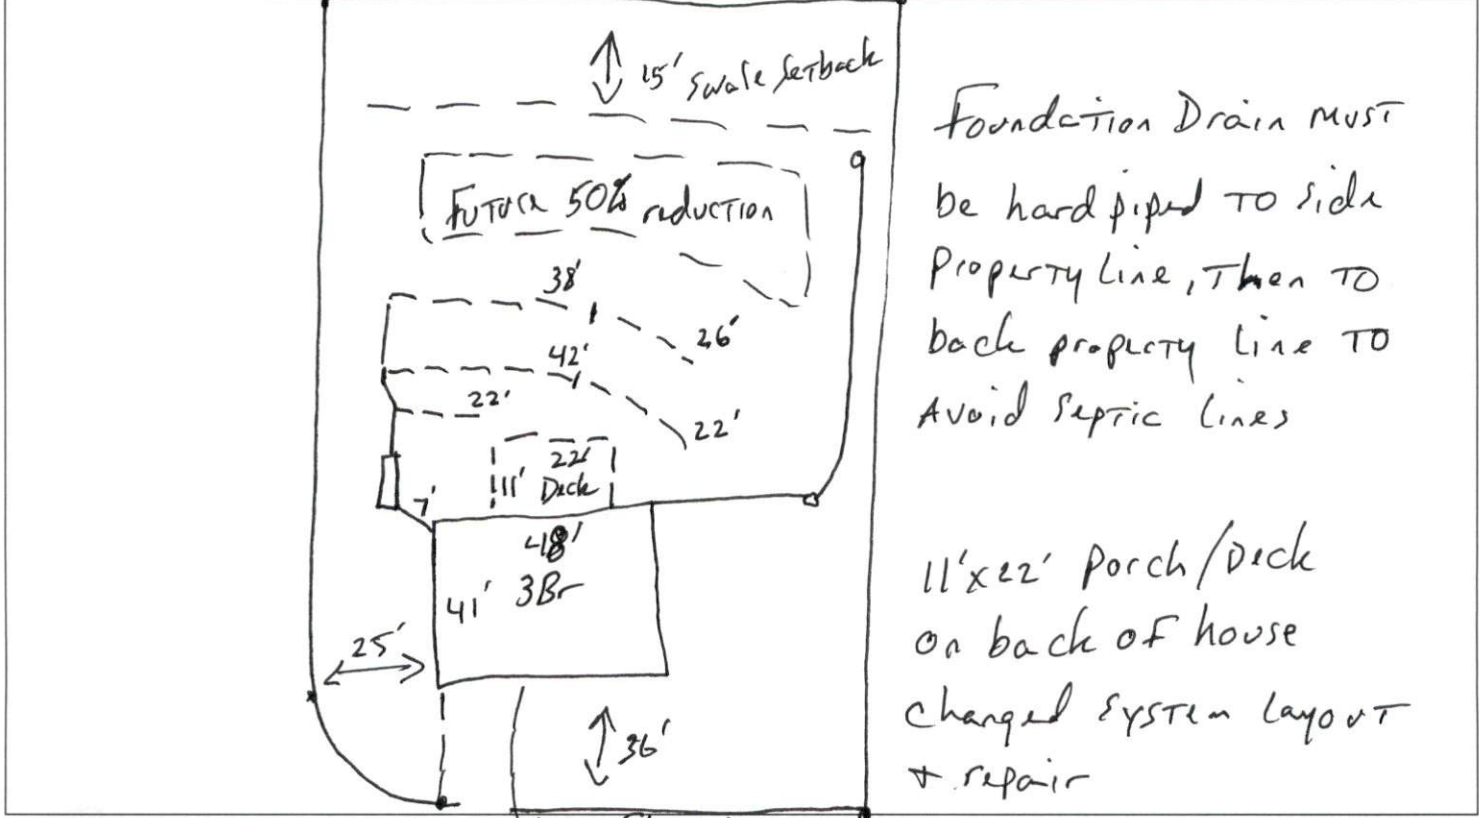 15' Swale Setback
Future 50% reduction
38'
26'
42'
22'
22'
22'
11' Deck
7'
48'
41' 3Br
25'
36'
Foundation Drain must
be hard piped to side
property line, Then to
back property line to
Avoid Septic lines
11'x22' Porch/Deck
on back of house
changed system layout
+ repair